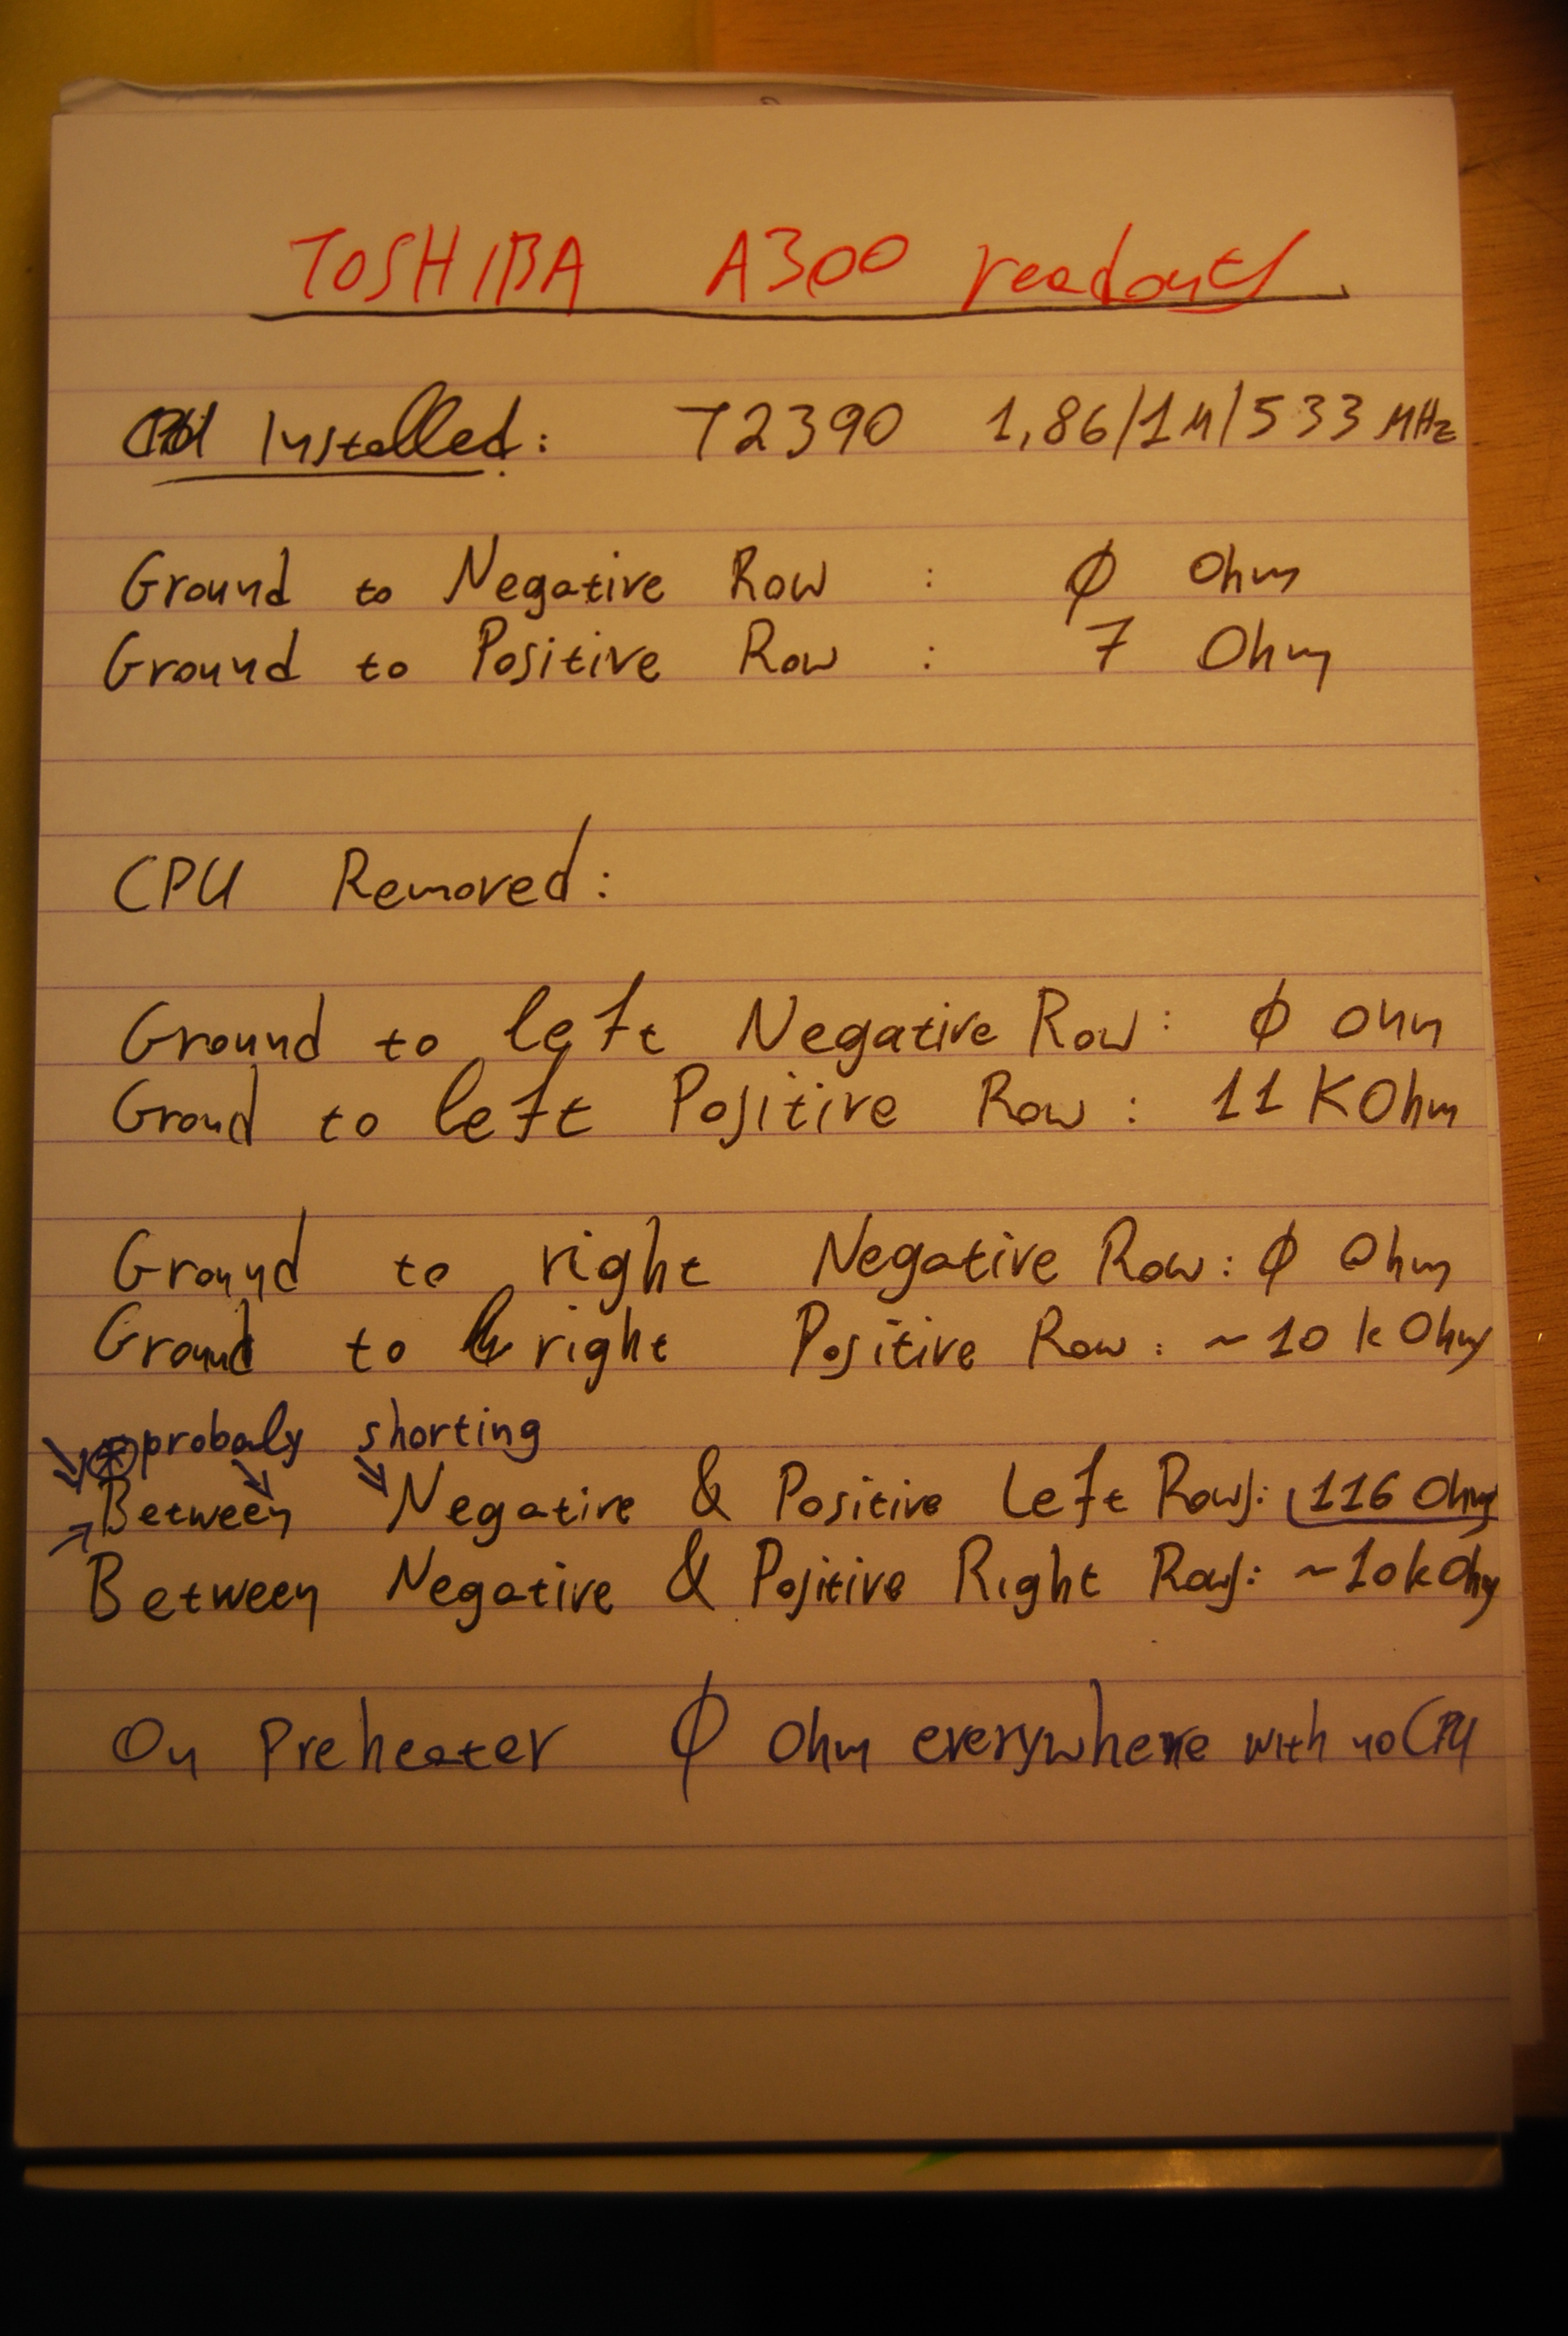 TOSHIBA A300 readouts
CPU Installed: T2390 1,86/1M/533 MHz
Ground to Negative Row : Ø Ohm
Ground to Positive Row : 7 Ohm
CPU Removed:
Ground to left Negative Row: Ø Ohm
Groud to left Positive Row: 11 KOhm
Ground to right Negative Row: Ø Ohm
Ground to right Positive Row: ~10 kOhm
* probaly shorting
Between Negative & Positive Left Rows: 116 Ohm
Between Negative & Positive Right Rows: ~10kOhm
On Preheater Ø Ohm everywhere with no CPU